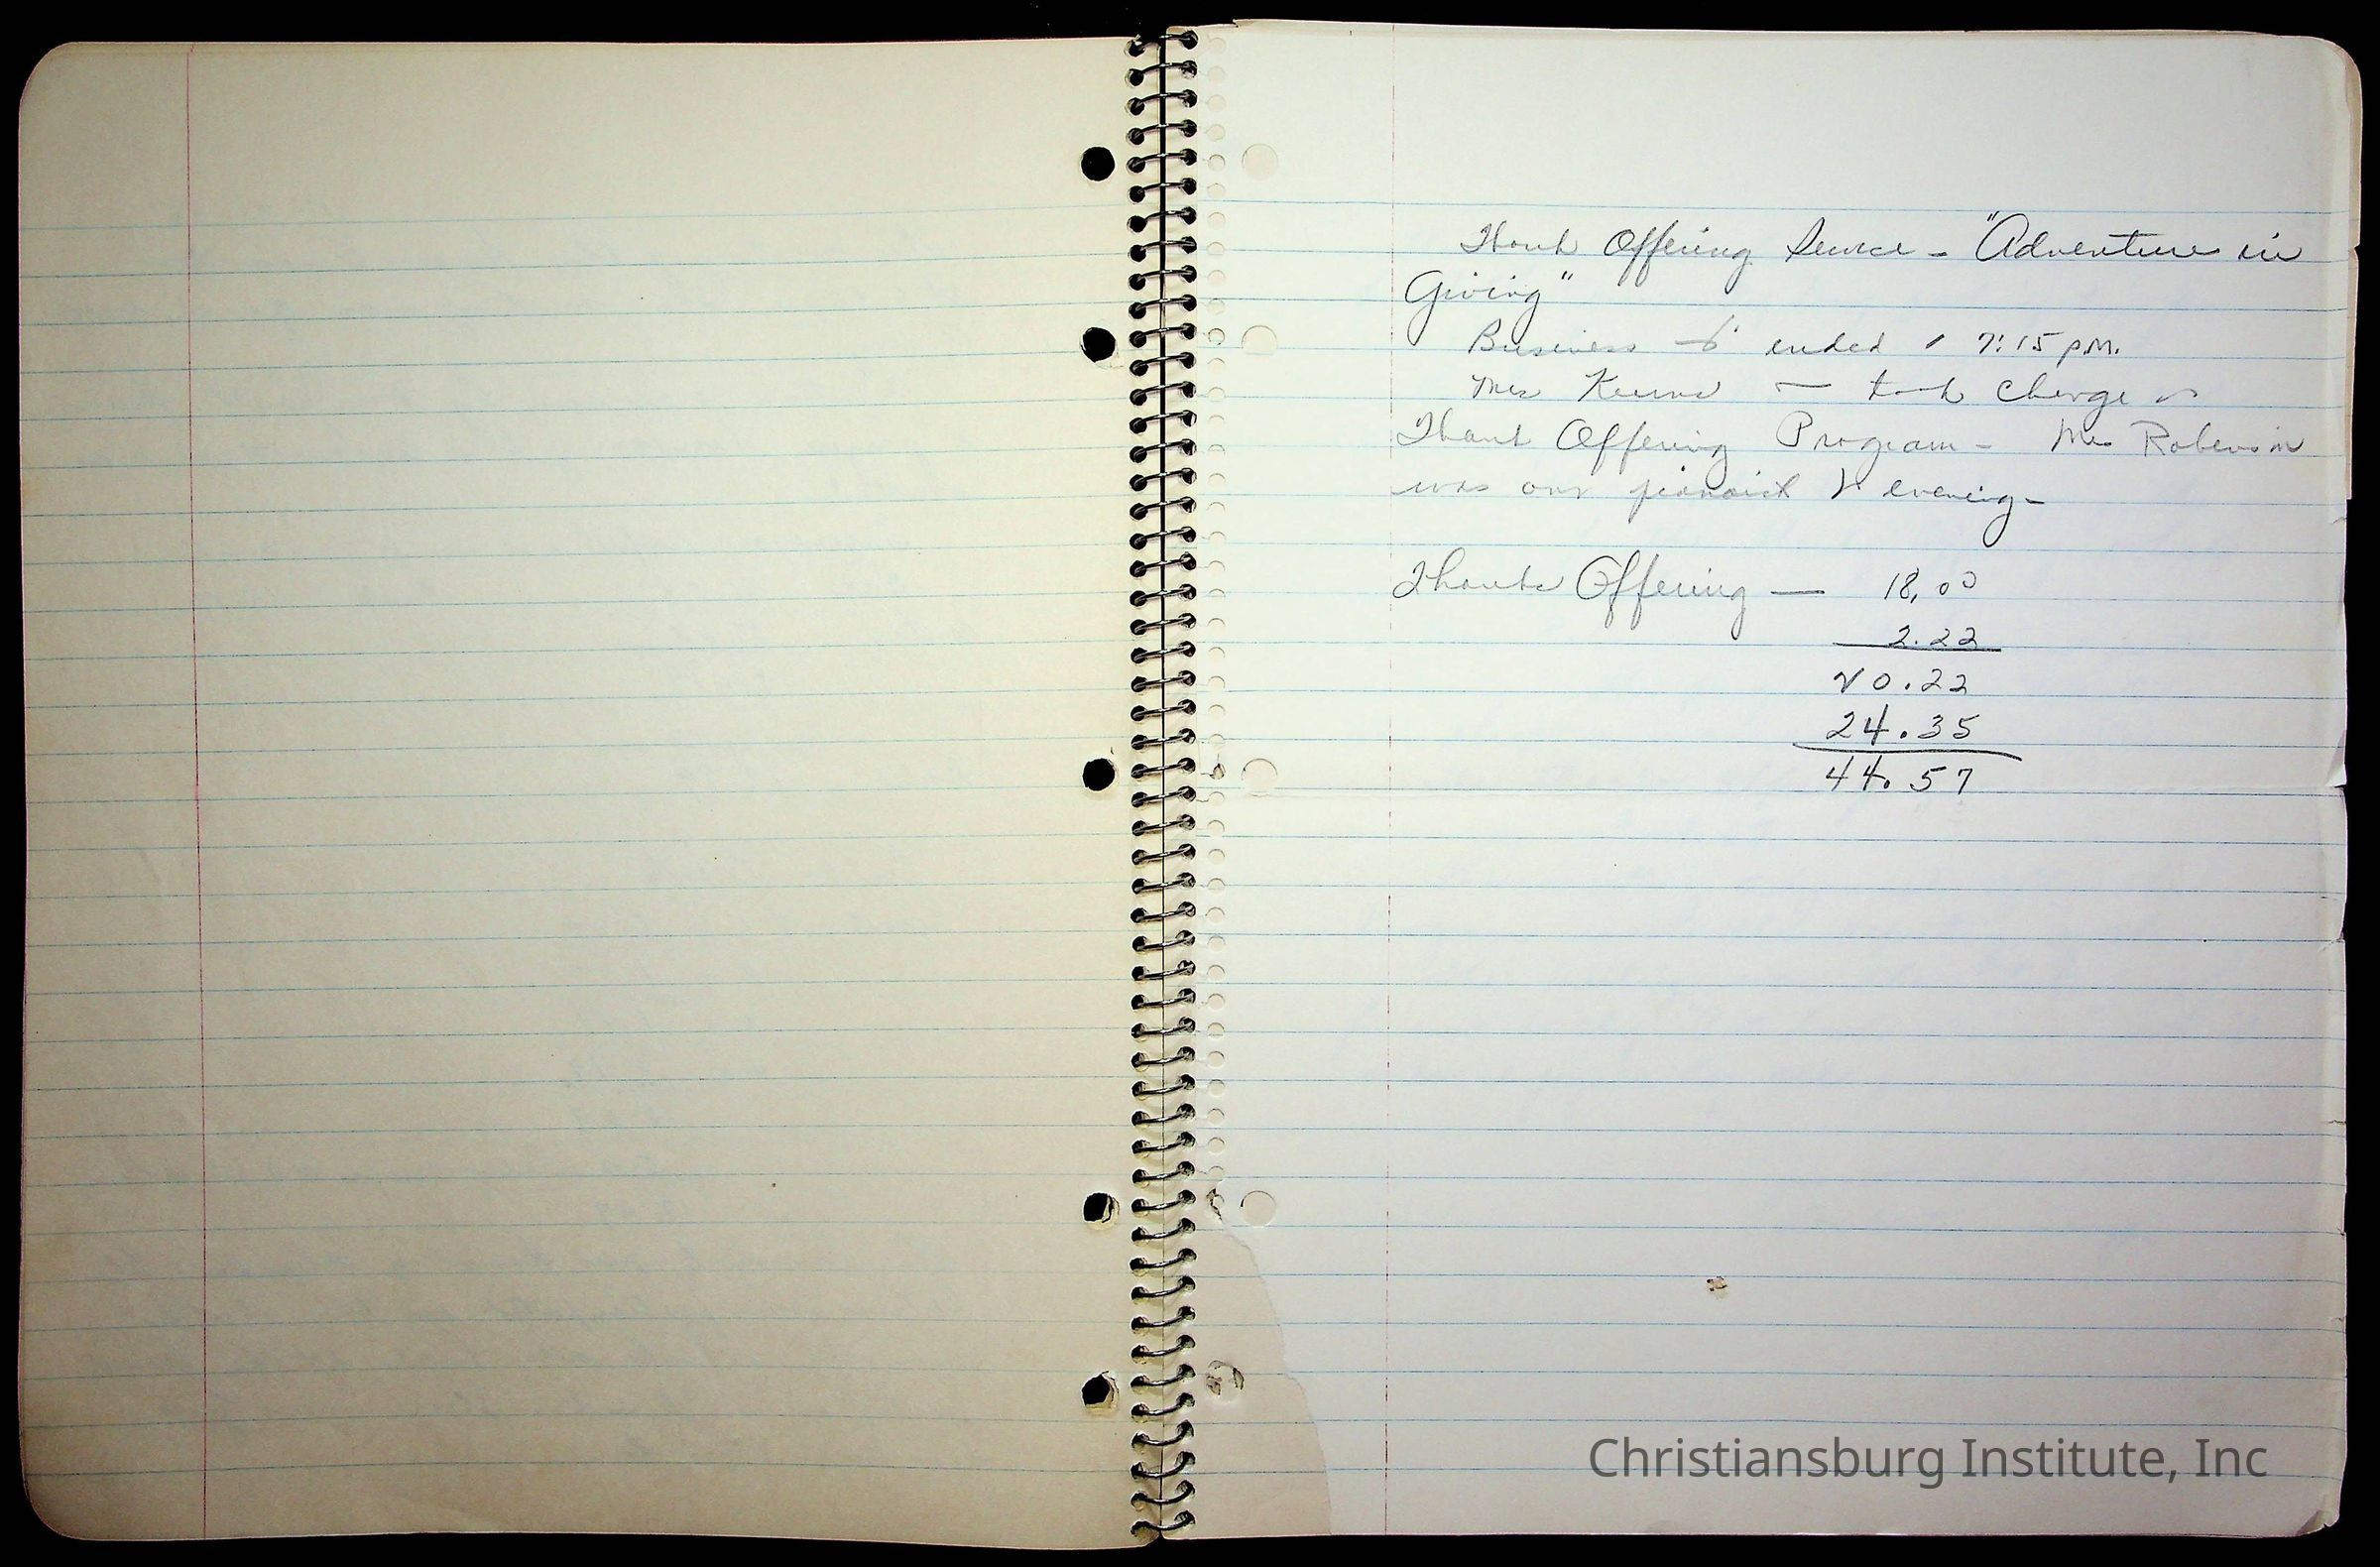 Thank Offering Service - "Adventure in
Giving"
Business ended 7:15 p.m.
Mrs took charge
Thank Offering Program - Mrs Roberson
was our pianist evening -
Thanks Offering — 18.00
2.22
20.22
24.35
44.57
Christiansburg Institute, Inc